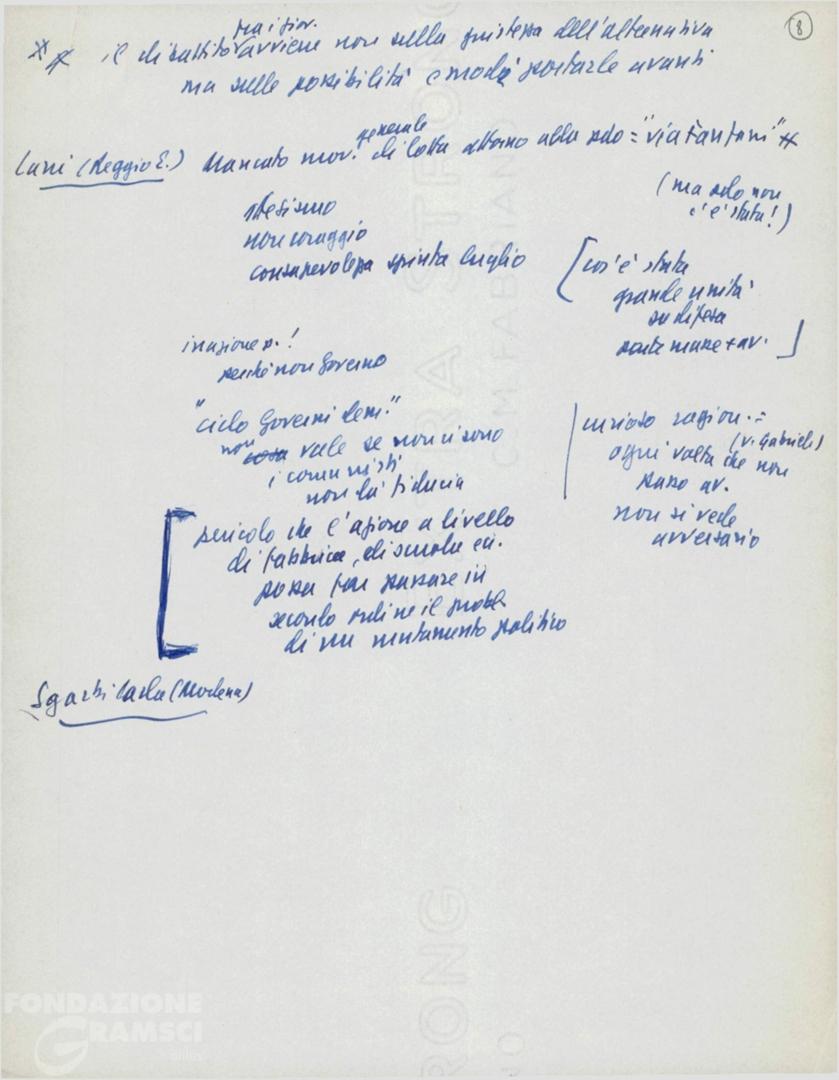 8
tra i giov.
** il dibattito avviene non sulla giustezza dell'alternativa
ma sulle possibilità e modi portarle avanti
generale
Lani (Reggio E.) Mancato mov. di lotta attorno alla = "via Fanfani" *
(ma non
c'è stata!)
non coraggio
consapevolezza spinta luglio
[cos'è stata
grande unità
su difesa
]
inazione p.!
perché non Governo
"ciclo Governi dem."
non vale se non ci sono
i comunisti
non dà fiducia
curioso ragion. =
(v. Gabriele)
ogni volta che non
passo av.
non si vede
avversario
[pericolo che l'azione a livello
di fabbrica, di scuola ecc.
possa far passare in
secondo ordine il probl.
di un mutamento politico
Sgarbi Carla (Modena)
FONDAZIONE
GRAMSCI
onlus
EXTRA STRONG
C.M. FABRIANO
RONG
NO